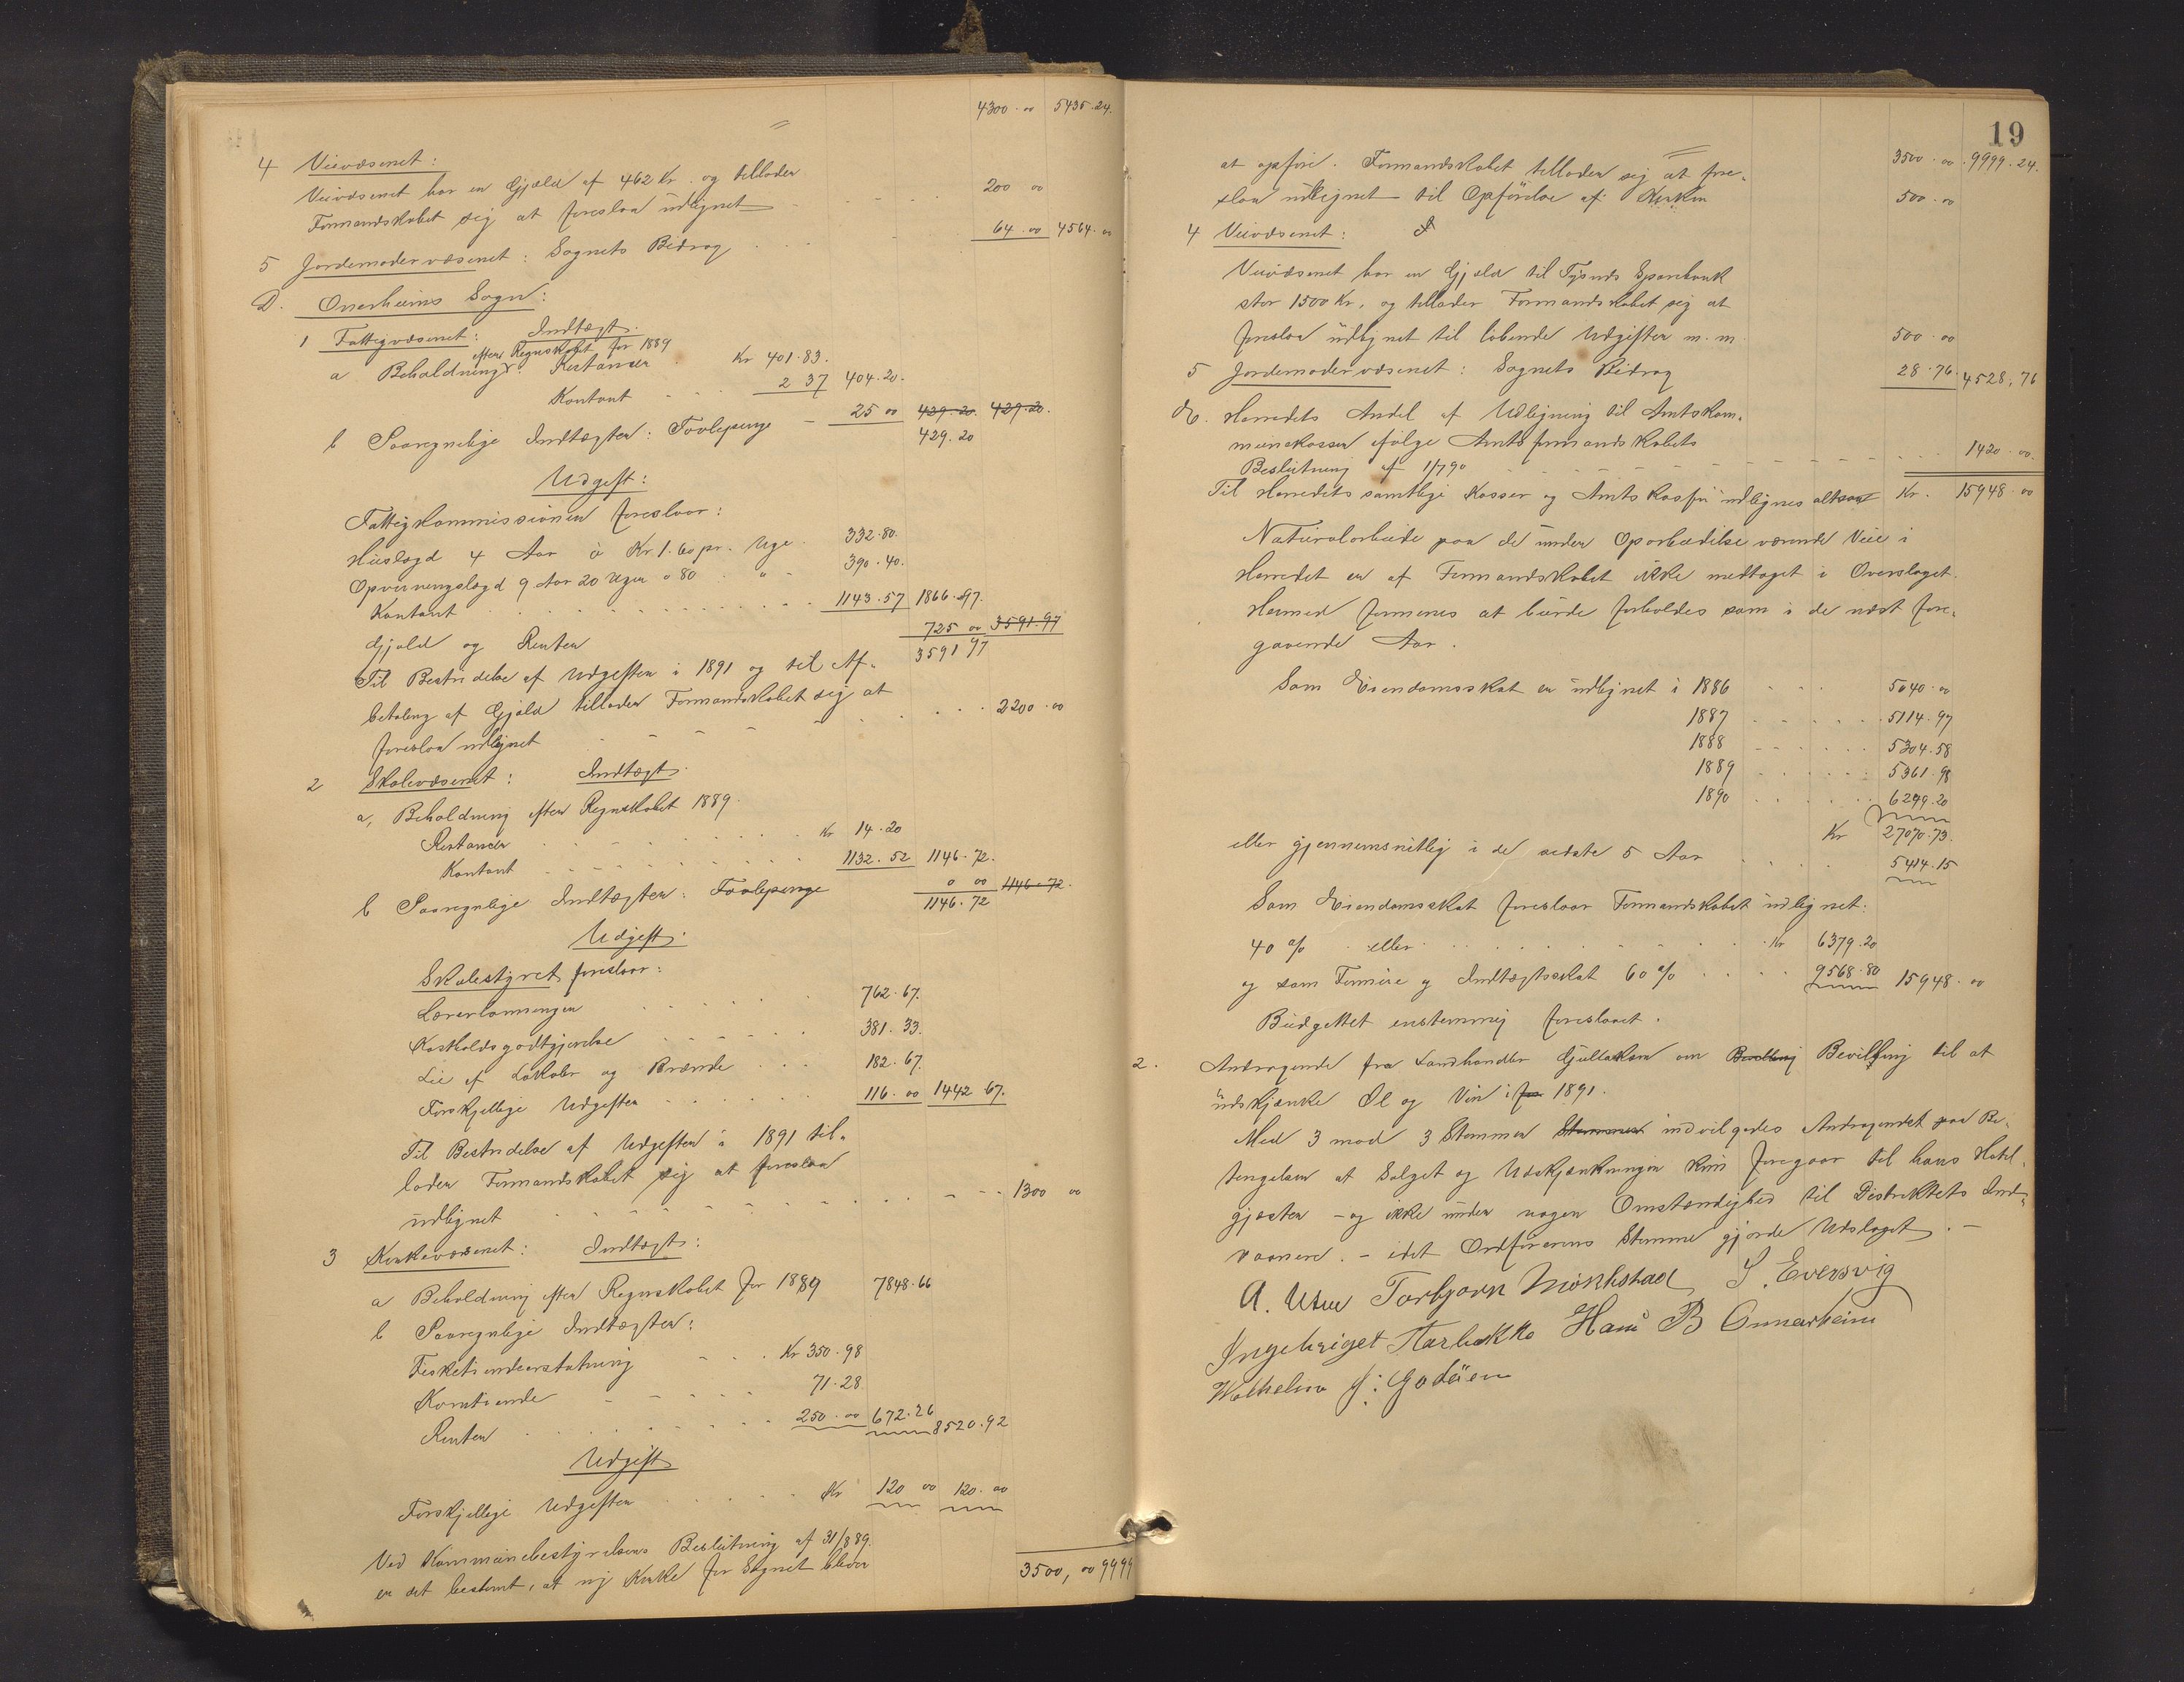 4300.00 5435.24.
4 Veivæsenet:
Veivæsenet har en Gjæld af 462 Kr. og tillader
Formandskabet sig at foreslaa udlignet 200 00
5 Jordemodervæsenet: Sognets Bidrag 64.00 4564.00
D. Onarheims Sogn:
1 Fattigvæsenet: Indtægt.
a Beholdning efter Regnskabet for 1889. Restancer Kr 401.83.
Kontant 2 37 404.20.
b Paaregnelige Indtægter: Tovlepenge 25 00 429.20. 429.20.
429.20
Udgift:
Fattigkommissionen foreslaar:
Huslægd 4 Aar à Kr 1.60 pr. Uge 332.80.
Opverningslægd 9 Aar 20 Uger à 80 " 390.40.
Kontant 1143.57 1866.97.
Gjæld og Renter 725 00 3591.97
3591 97
Til Bestridelse af Udgifter i 1891 og til Af-
betaling af Gjæld tillader Formandskabet sig at
foreslaa udlignet 2200.00
2 Skolevæsenet: Indtægt.
a, Beholdning efter Regnskabet 1889.
Restancer Kr 14.20
Kontant 1132.52 1146.72.
b Paaregnelige Indtægter: Tovlepenge 0 00 1146.72.
1146.72
Udgift.
Skolestyret foreslaar:
Lærerlønninger 762.67.
Kostholdsgodtgjørelse 381.33.
Leie af Lokaler og Brænde 182.67.
Forskjellige Udgifter 116.00 1442 67.
Til Bestridelse af Udgifter i 1891 til-
lader Formandskabet sig at foreslaa
udlignet 1300 00
3 Kirkevæsenet: Indtægt:
a Beholdning efter Regnskabet for 1889 7848.66
b Paaregnelige Indtægter:
Fisketiendeerstatning Kr 350.98
Korntiende 71.28
Renter 250.00 672.26 8520.92
Udgift
Forskjellige Udgifter Kr 120 00 120.00
Ved Kommunebestyrelsens Beslutning af 31/8 89.
er det bestemt, at ny Kirke for Sognet bliver
3500,00 9999
19
3500.00 9999.24.
at opføre. Formandskabet tillader sig at fore-
slaa udlignet til Opførelse af Kirken 500.00
4 Veivæsenet:
Veivæsenet har en Gjæld til Tysnes Sparebank
stor 1500 Kr, og tillader Formandskabet sig at
foreslaa udlignet til løbende Udgifter m.m 500.00
5 Jordemodervæsenet: Sognets Bidrag 28.76 4528,76
E. Herredets Andel af Udligning til Amtskom-
munekassen ifølge Amtsformandskabets
Beslutning af 1/7 90 1420.00.
Til Herredets samtlige Kasser og Amtskassen udlignes altsaa Kr. 15948.00
Naturalarbeide paa de under Oparbeidelse værende Veie i
Herredet er af Formandskabet ikke medtaget i Overslaget.
Hermed formenes at burde forholdes som i de næst fore-
gaaende Aar.
Som Eiendomsskat er udlignet i 1886 5040.00
1887 5114.97
1888 5304.58
1889 5361.98
1890 6249.20
Kr 27070.73.
eller gjennemsnitlig i de sidste 5 Aar 5414.15
Som Eiendomsskat foreslaar Formandskabet udlignet:
40 % eller Kr 6379.20
og som Formue og Indtægtsskat 60 % 9568.80 15948.00
Budgettet enstemmig foreslaaet.
2. Andragende fra Landhandler Gullaksen om Bevilling Bevilling til at
udskjænke Øl og Vin i for 1891.
Med 3 mod 3 Stemmer Stemmer indvilgedes Andragendet paa Be-
tingelser at Salget og Udskjænkningen kun foregaar til hans Hotel-
gjæster – og ikke under nogen Omstændighed til Distriktets Ind-
vaanere. – idet Ordførerens Stemme gjorde Udslaget. –
A. Uteve Torbjørn Mørkhstad S. Eversvig
Ingebrigt Flarbakke Hans B Onnarheim
Wilhelm J: Godøen